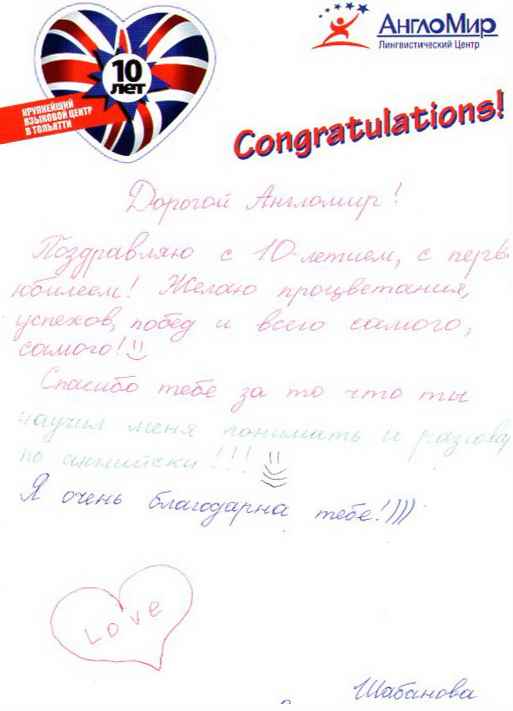 10
лет
КРУПНЕЙШИЙ
ЯЗЫКОВОЙ ЦЕНТР
В ТОЛЬЯТТИ
АнглоМир
Лингвистический Центр
Congratulations!
Дорогой Англомир!
Поздравляю с 10-летием, с перв
юбилеем! Желаю процветания,
успехов, побед и всего самого,
самого!
Спасибо тебе за то что ты
научил меня понимать и разгова
по английски!!!
Я очень благодарна тебе!)))
Love
Шабанова